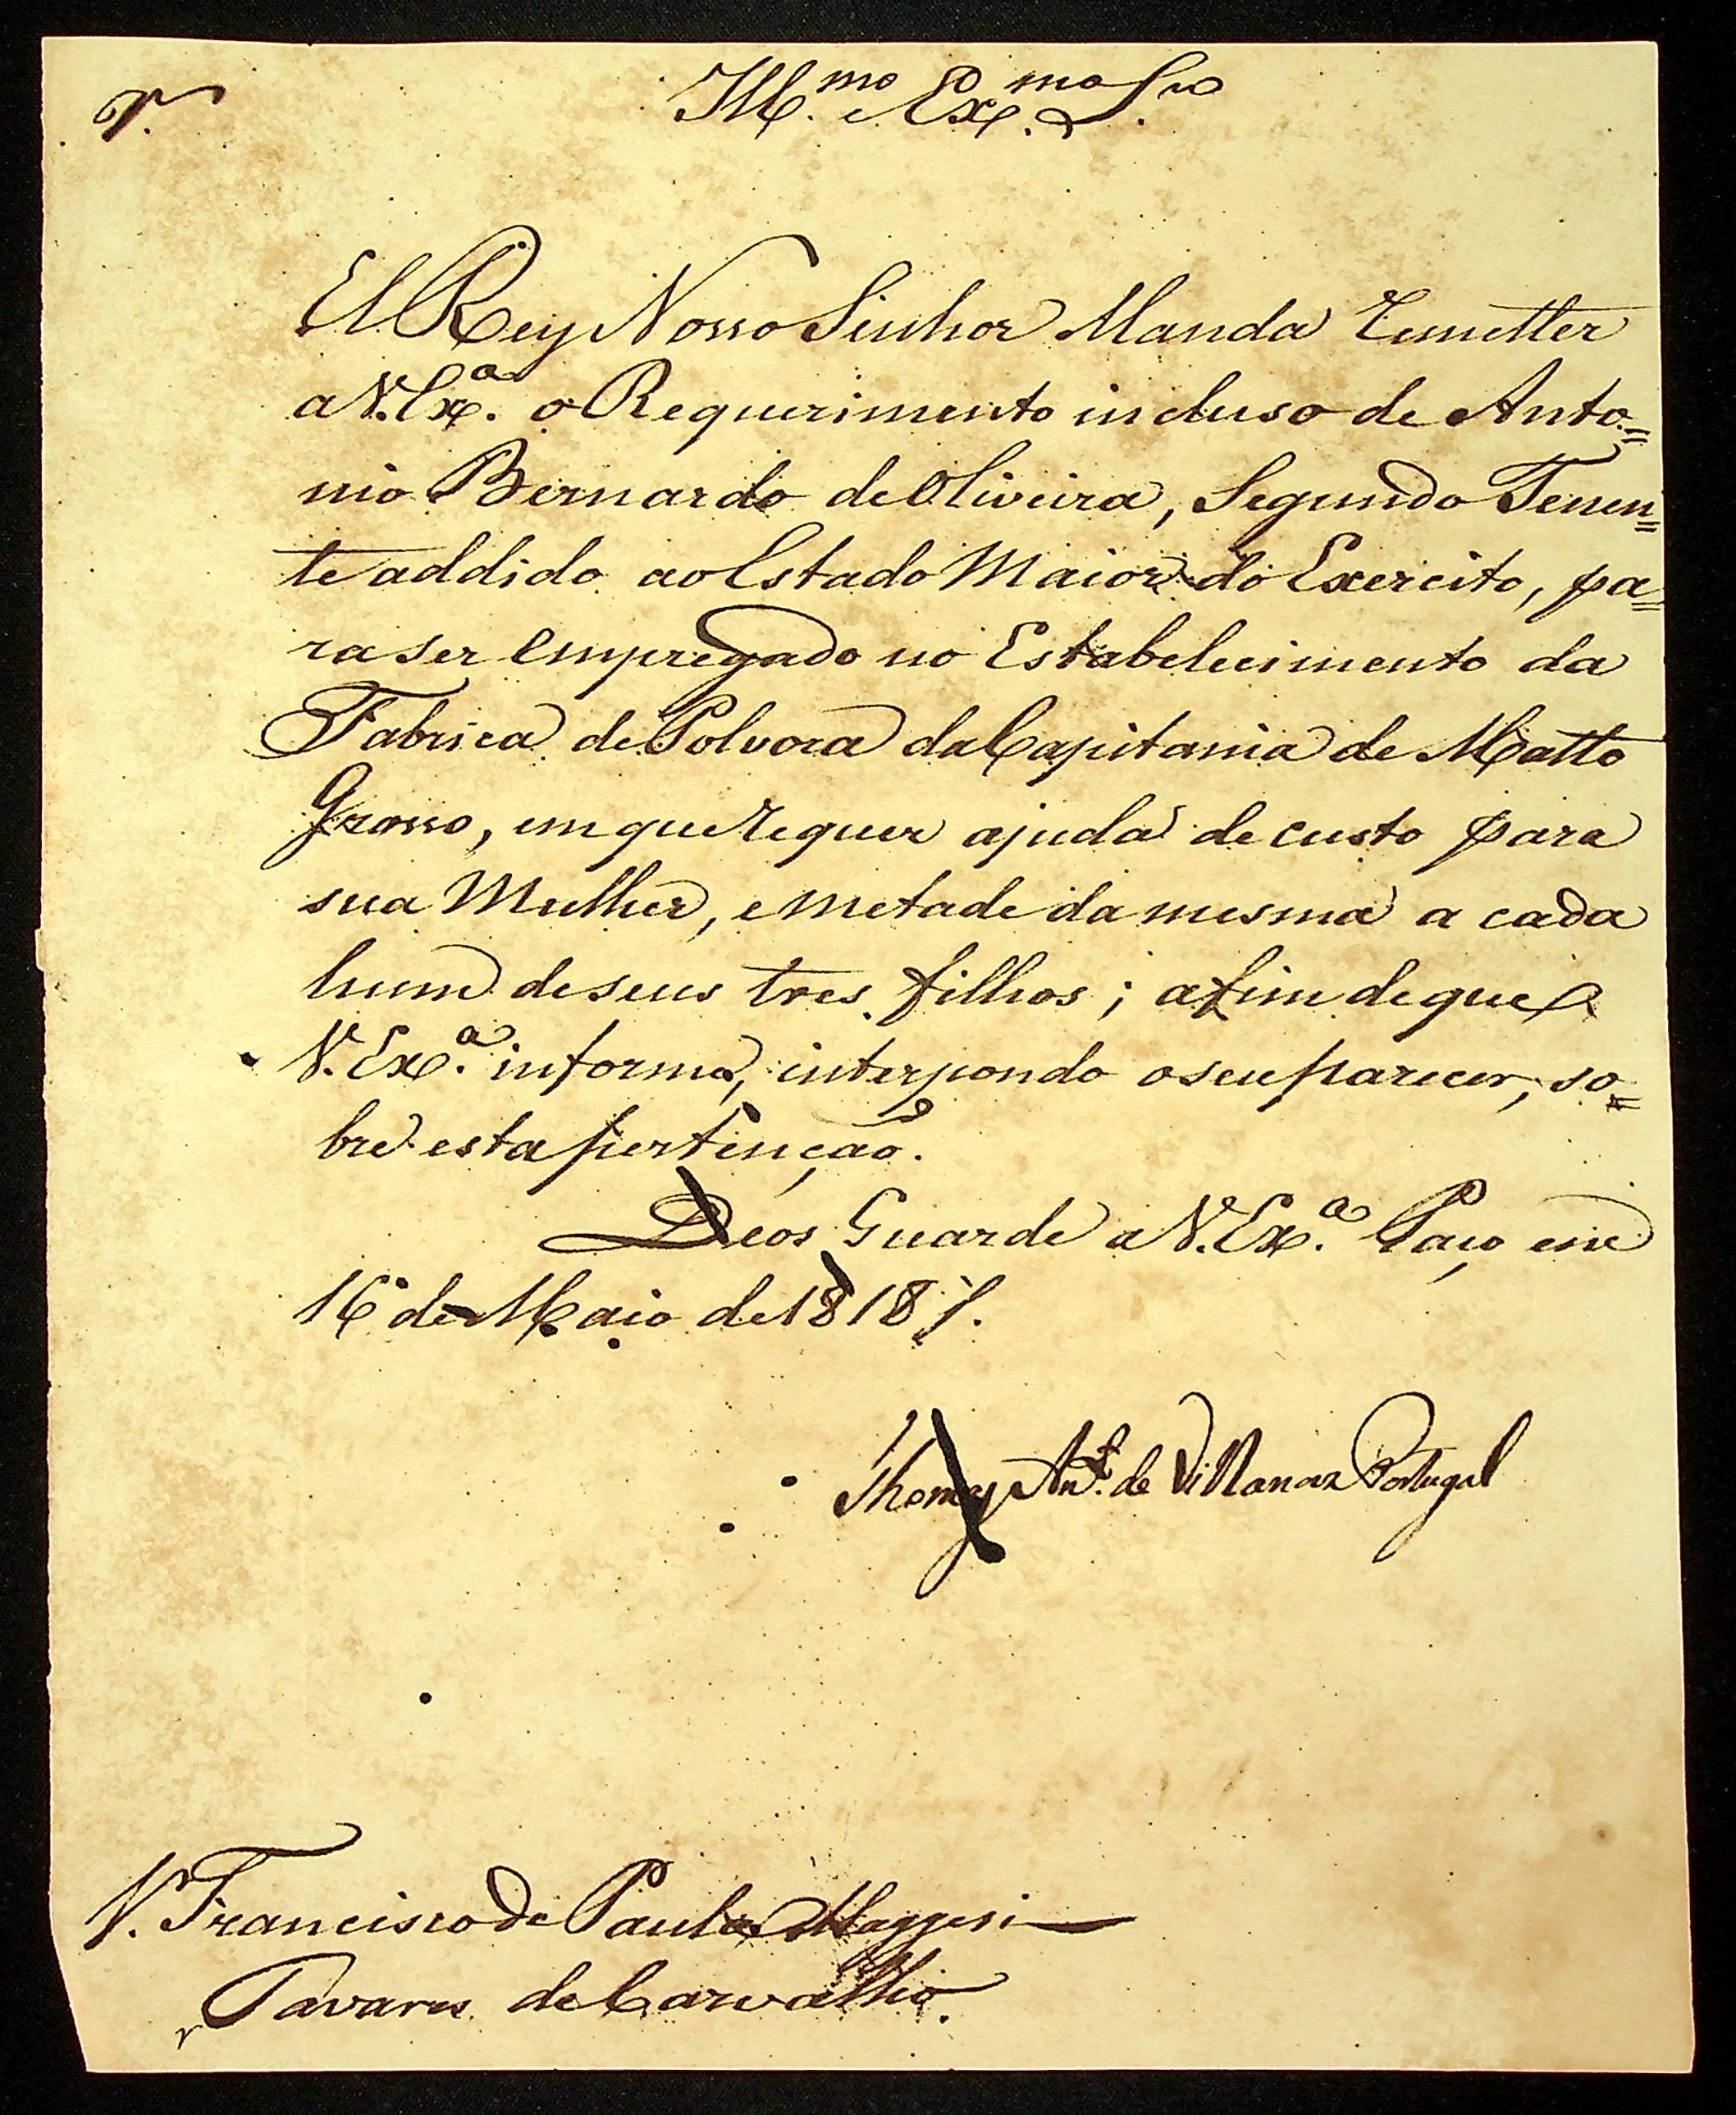 Ill.mo e Ex.mo Sr.
El Rey Nosso Senhor Manda remetter
a V. Ex.a o Requerimento incluso de Anto=
nio Bernardo de Oliveira, Segundo Tenen=
te addido ao Estado Maior do Exercito, pa=
ra ser empregado no Estabelecimento da
Fabrica de Polvora da Capitania de Matto
Grosso, em que requer ajuda de custo para
sua Mulher, e metade da mesma a cada
hum de seus tres filhos; afim de que
V. Ex.a informe, interpondo o seu parecer, so=
bre esta pertenção.
Deos Guarde a V. Ex.a Paço em
16 de Maio de 1818
Thomaz Ant.o de Villanova Portugal
Francisco de Paula Maggesi
Tavares de Carvalho.